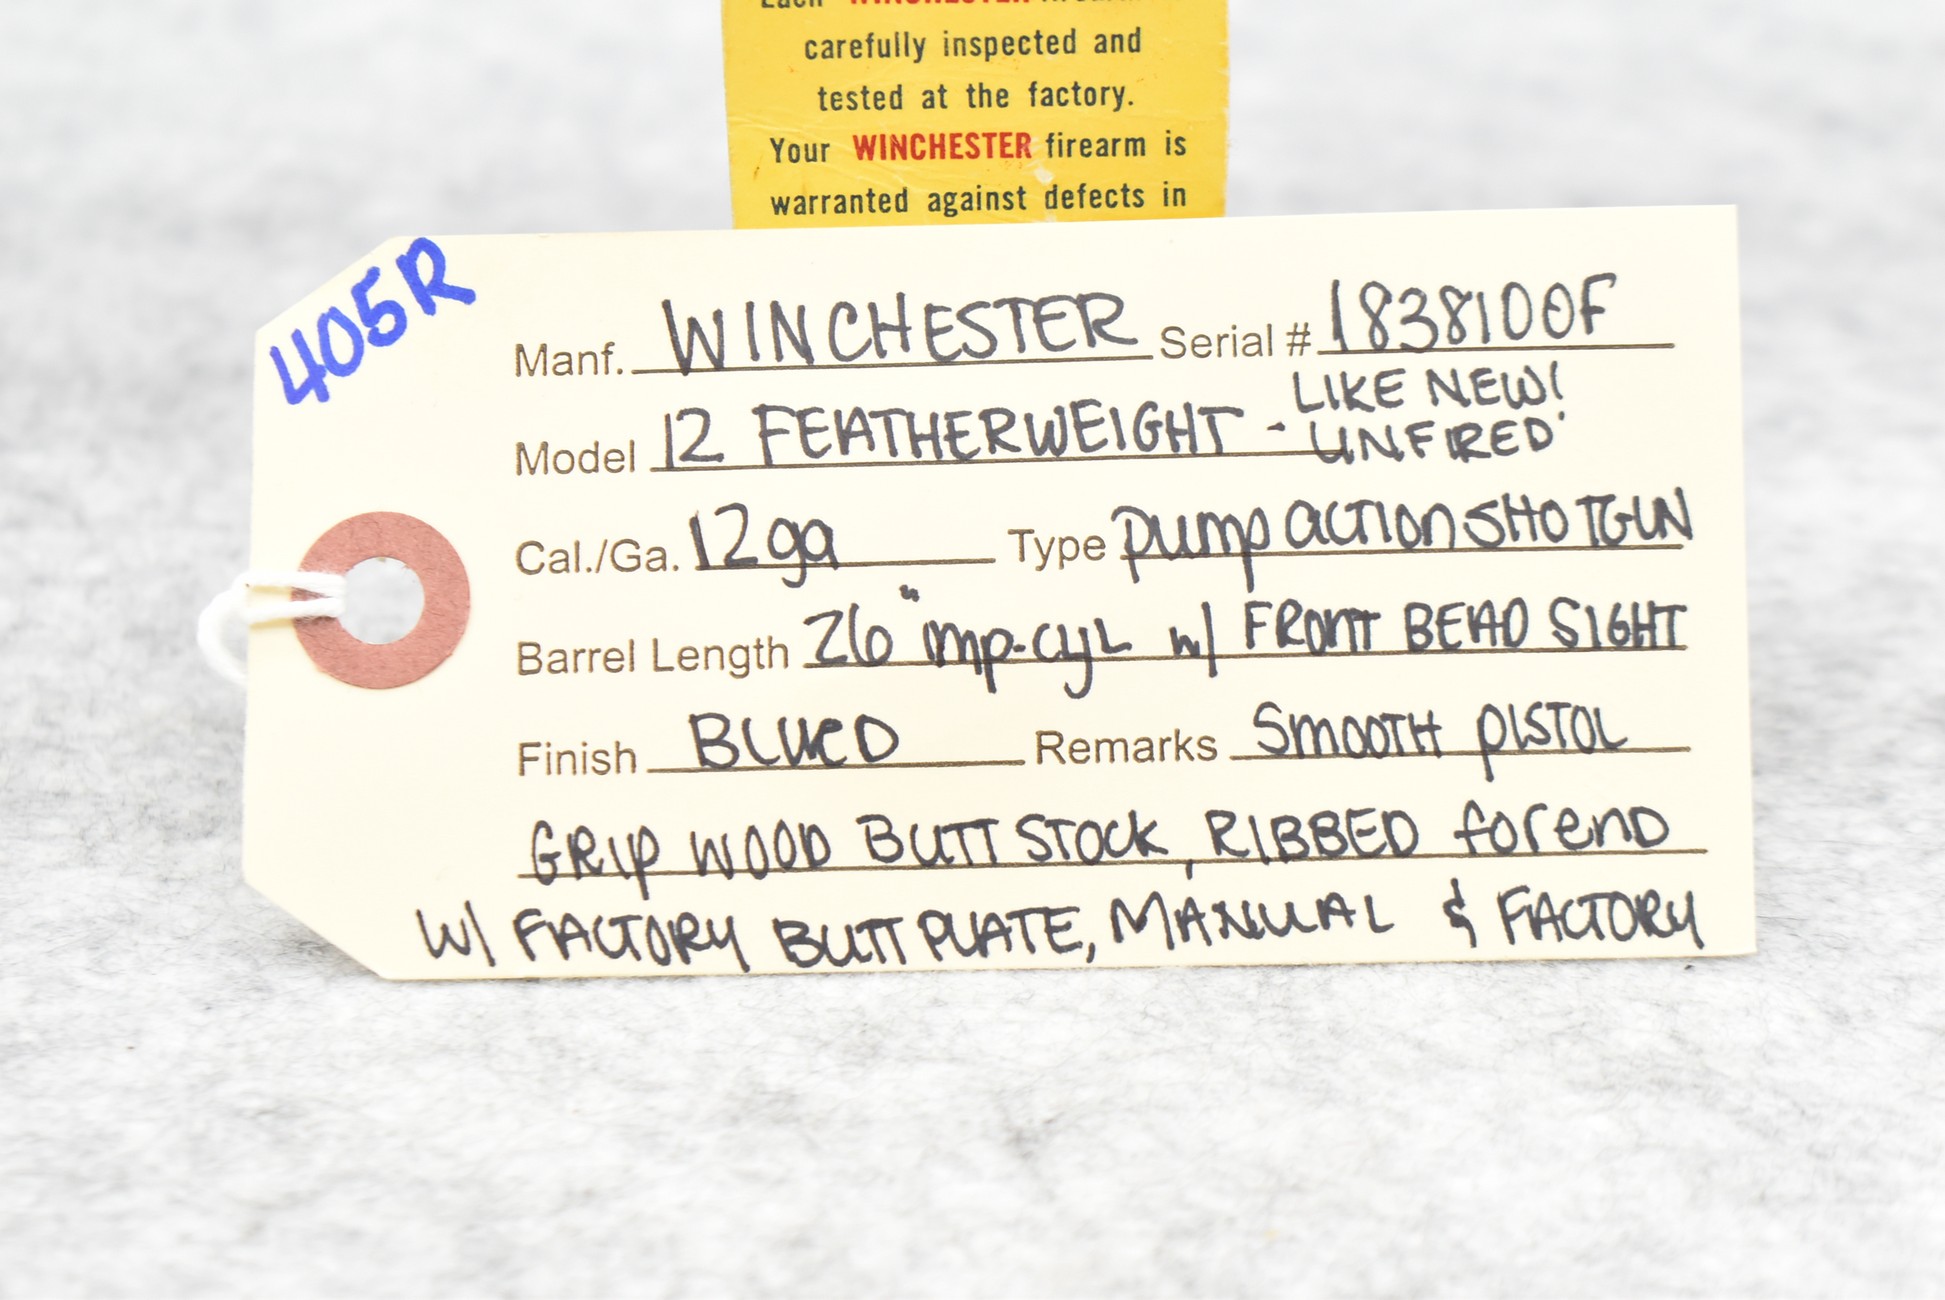 WINCHESTER
carefully inspected and
tested at the factory.
Your WINCHESTER firearm is
warranted against defects in
405R
Manf. WINCHESTER Serial # 1838100F
Model 12 FEATHERWEIGHT - LIKE NEW! UNFIRED
Cal./Ga. 12ga Type pump action SHOTGUN
Barrel Length 26" imp-cyl w/ FRONT BEAD SIGHT
Finish BLUED Remarks Smooth pistol
GRIP WOOD BUTT STOCK, RIBBED forend
w/ FACTORY BUTT PLATE, MANUAL & FACTORY